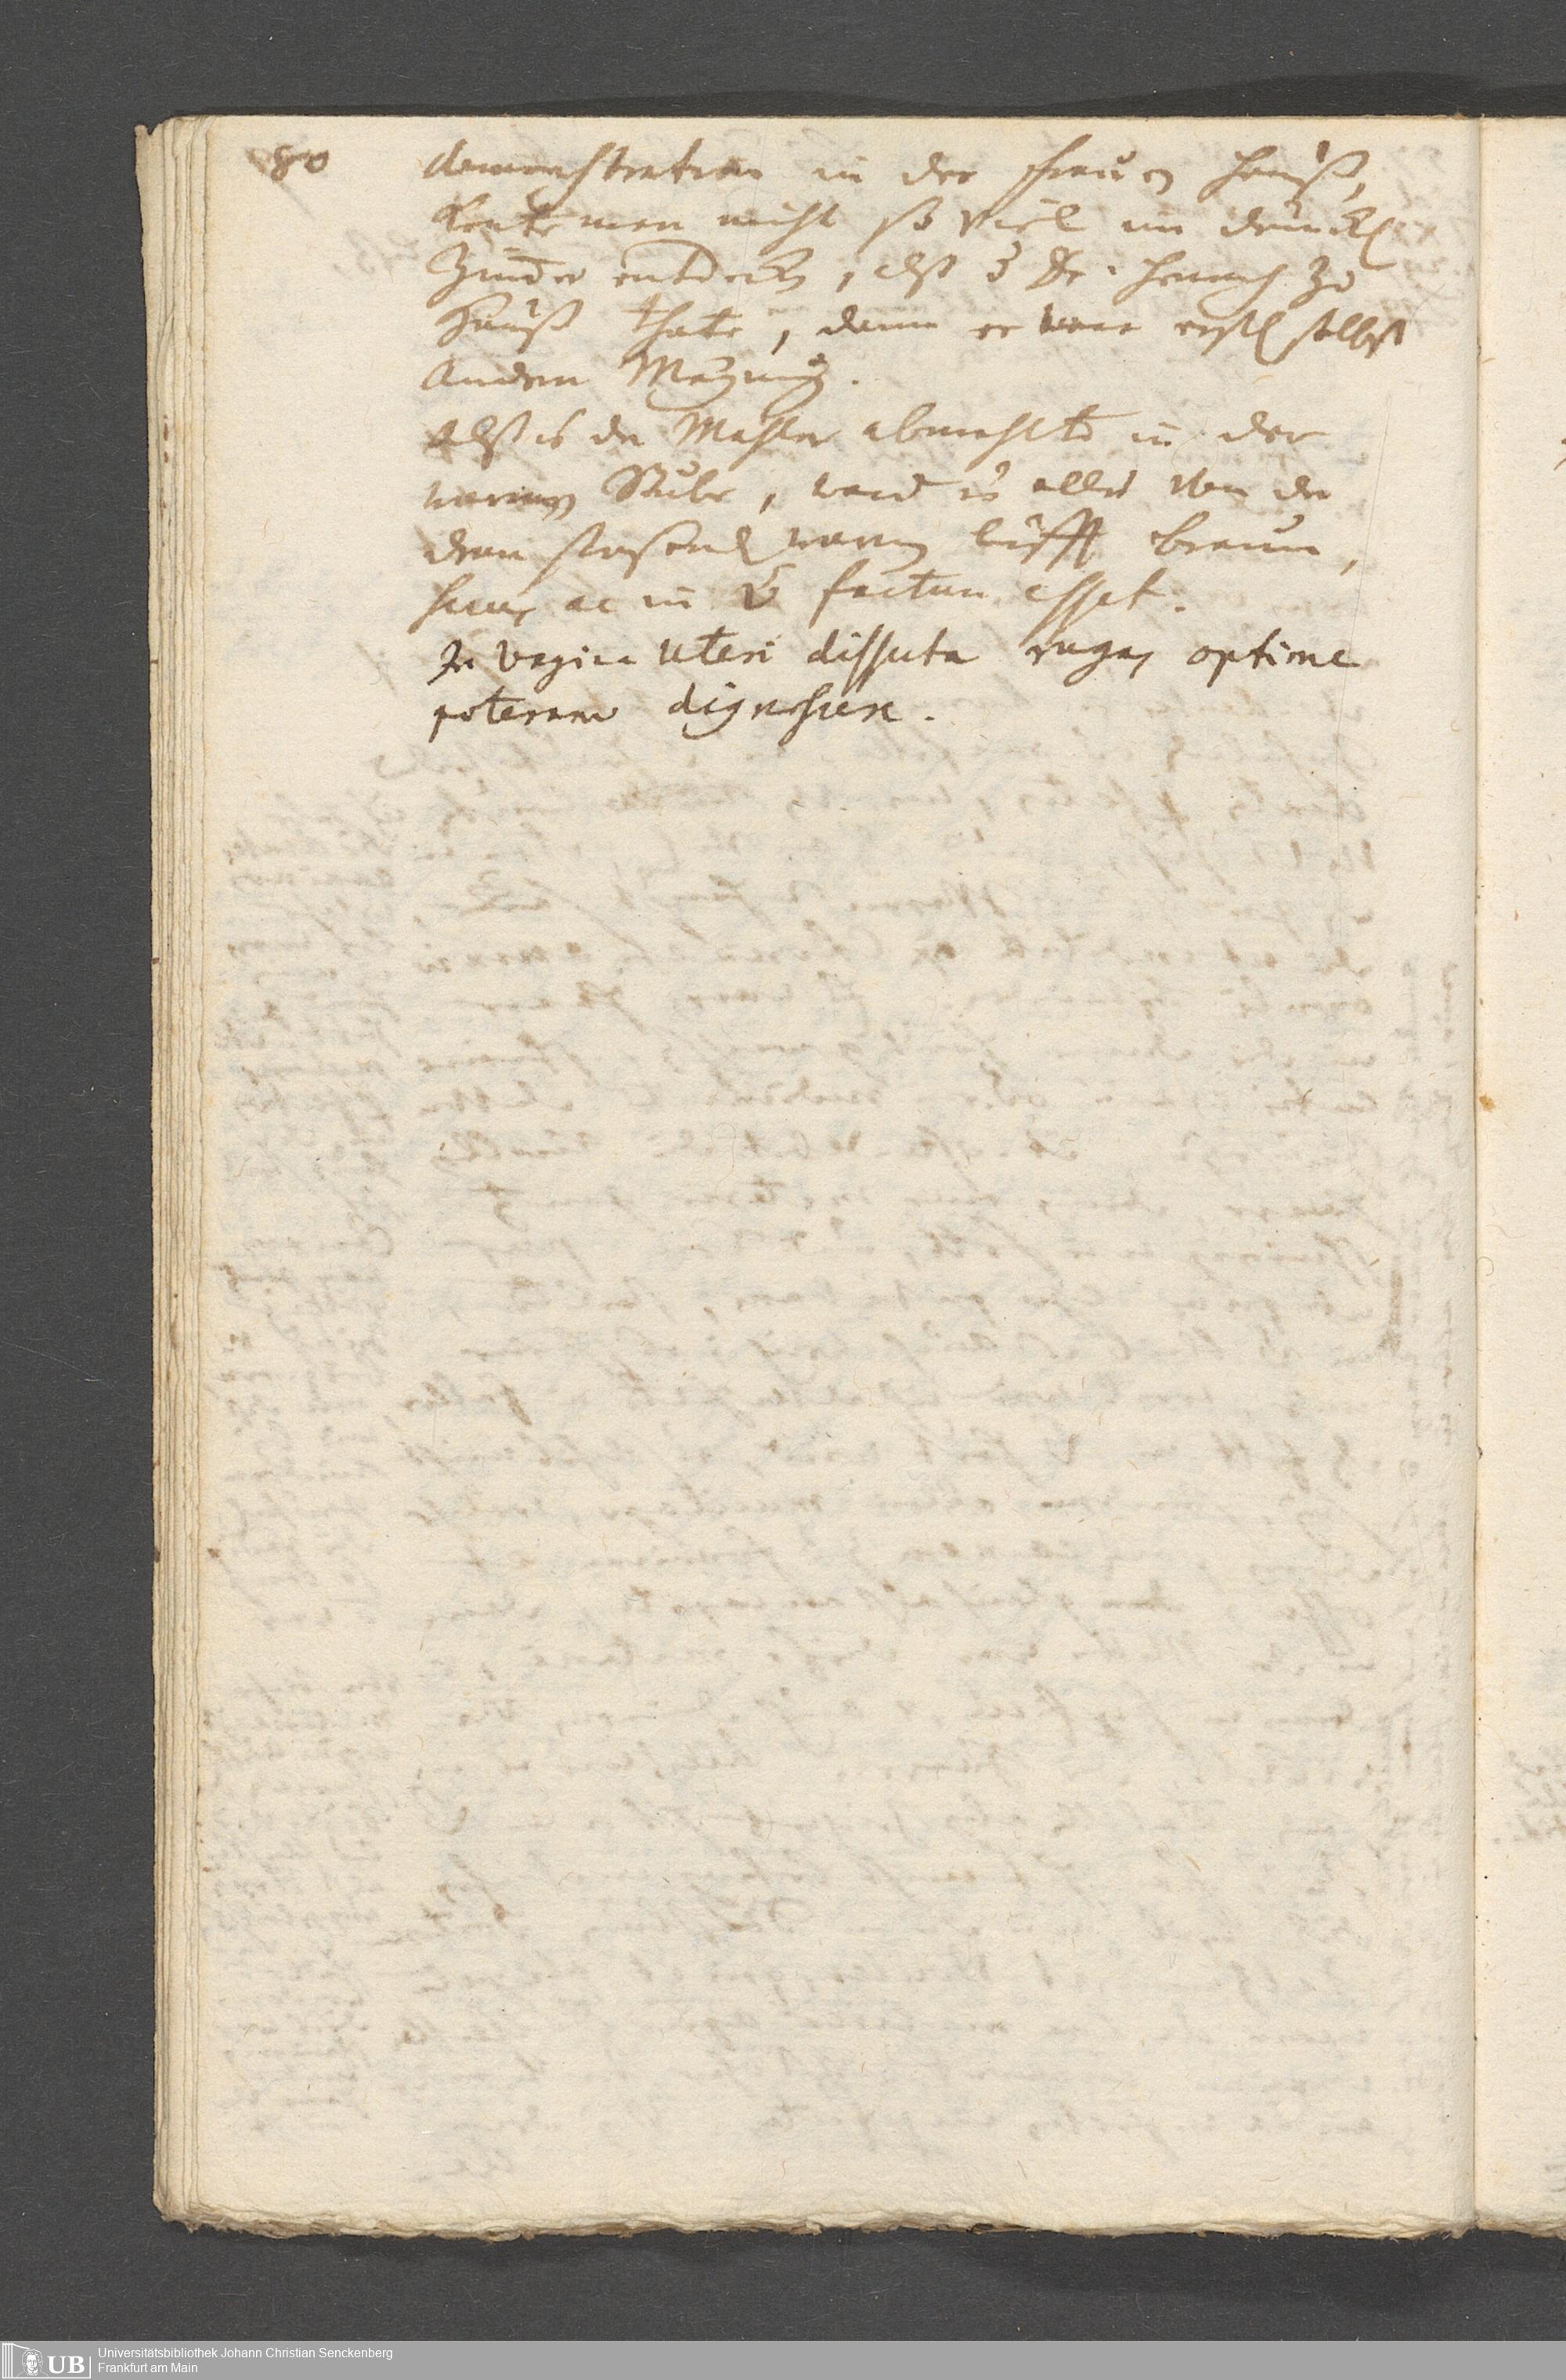 80
demonstration in der frauen hauß,
konte man nicht so viel im
Zimer entdecken, alß Dr. zu
Hauß thate, dann er ware erstl selbst
andern Meynung.
Alß es der Mahler abmahlte in der
warmen Stube, ward es alles von der
dran warmen lufft braun,
ac in factum esset.
In vagina uteri dissecta rugas optime
poteram dignoscere.
Universitätsbibliothek Johann Christian Senckenberg
Frankfurt am Main
UB